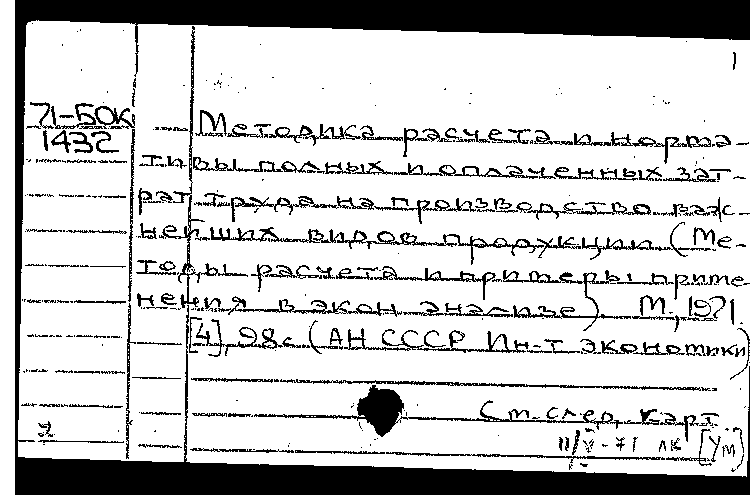 1
71-50к
1432
Методика расчета и норма-
тивы полных и оплаченных зат-
рат труда на производство важ-
нейших видов продукции (Ме-
тоды расчета и примеры приме
нения в экон анализе). М., 1971.
[4], 98с (АН СССР Ин-т экономики)
См. след. карт.
11/V-71 лк [Ум]